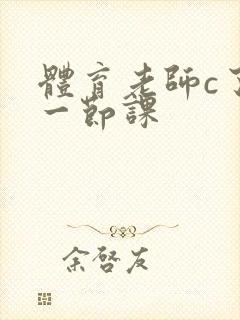 體育老師c了
一節課
余啓友